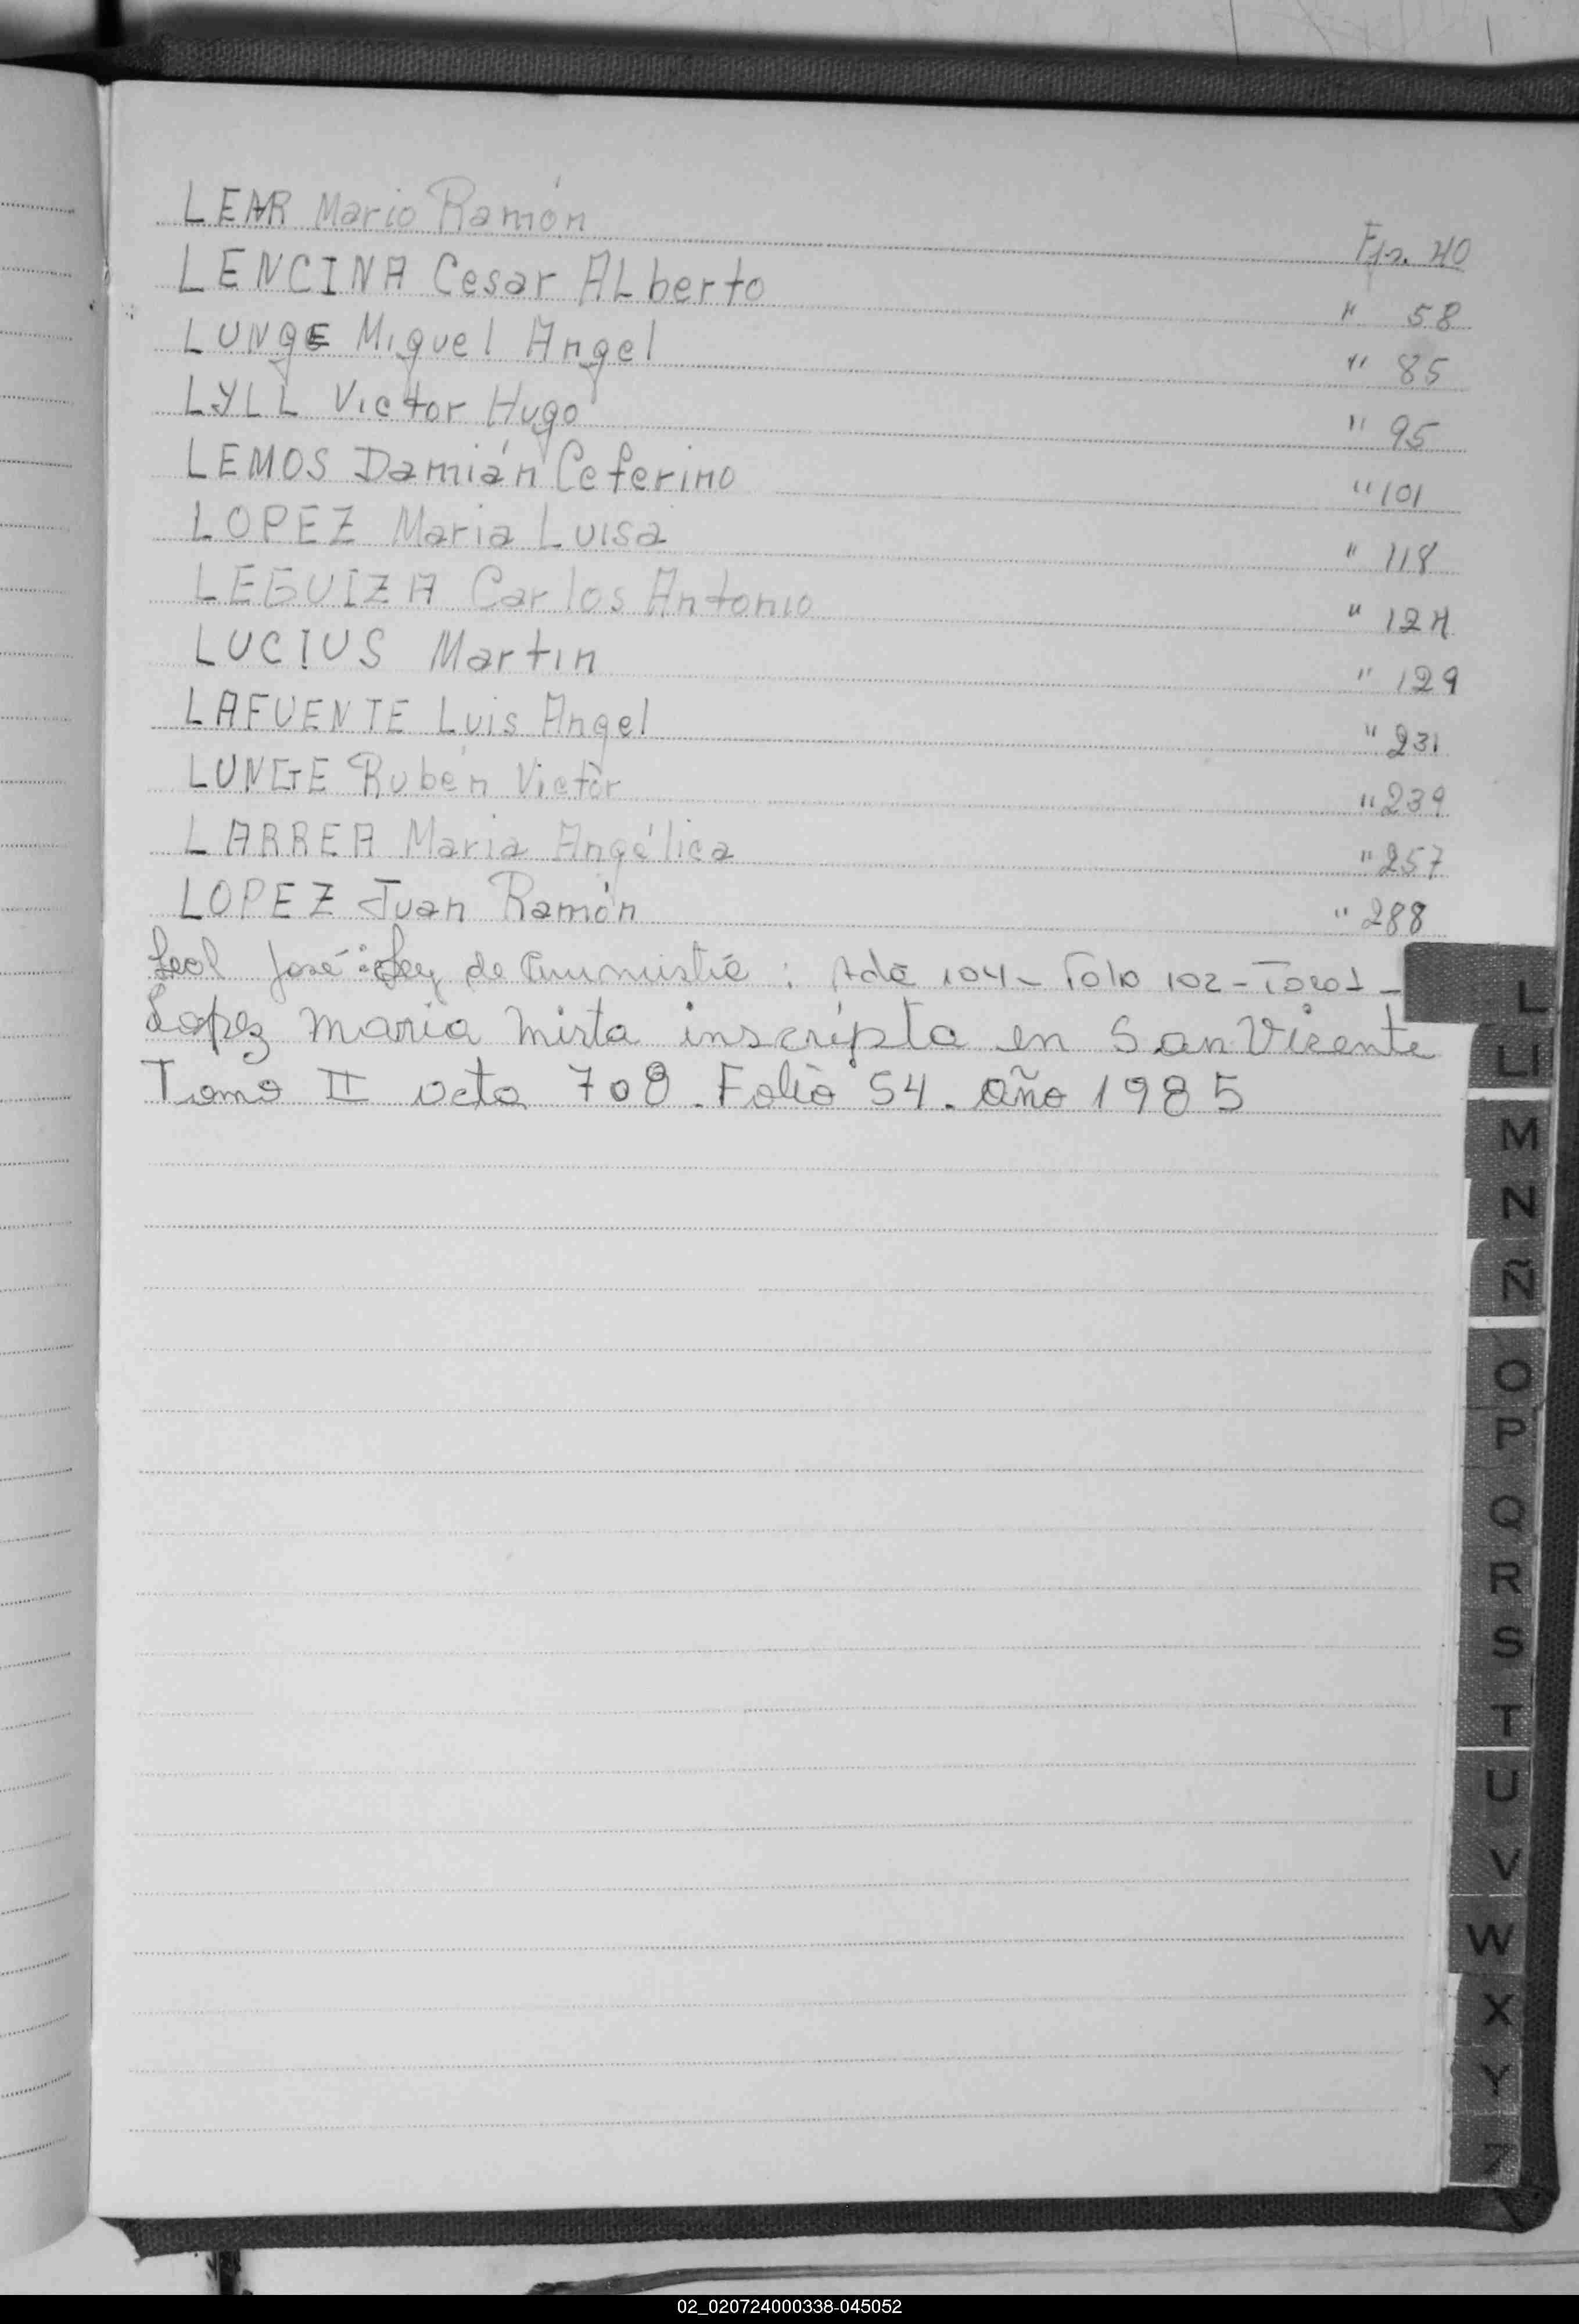 LEAR Mario Ramón Fjs. 40
LENCINA Cesar ALberto " 58
LUNgE Miguel Angel " 85
LYLL Victor Hugo " 95
LEMOS Damián Ceferino " 101
LOPEZ Maria Luisa " 118
LEGUIZA Carlos Antonio " 124
LUCIUS Martin " 129
LAFUENTE Luis Angel " 231
LUNGE Rubén Victor " 239
LARREA Maria Angélica " 257
LOPEZ Juan Ramón " 288
Leal José: Ley de : Acta 104 - Folio 102 -
Lopez Maria Mirta inscripta en San Vicente
Tomo II acta 708. Folio 54. Año 1985
L
Ll
M
N
Ñ
O
P
Q
R
S
T
U
V
W
X
Y
Z
02_020724000338-045052